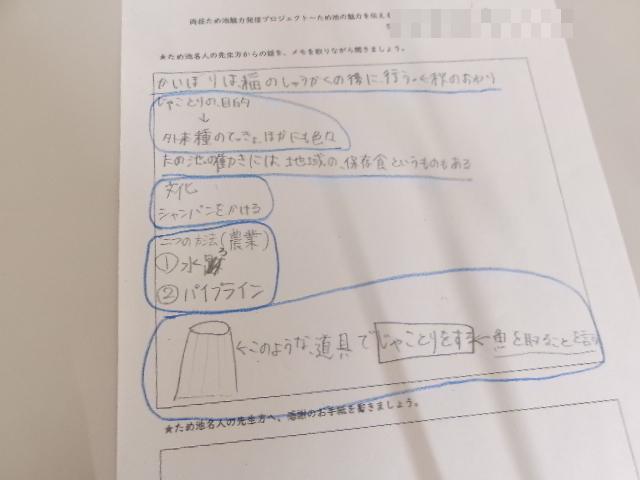 両荘ため池魅力発信プロジェクト～ため池の魅力を伝える
★ため池名人の先生方からの話を、メモを取りながら聞きましょう。
かいぼりは、稲のしゅうかくの後に、行う。←秋のおわり
じゃことりの、目的
↓
外来種のてっきょ、ほかにも色々
ため池の働きには、地域の、保存食というものもある
文化
シャンパンをかける
二つの方法(農業)
①水ろ
②パイプライン
←このような、道具でじゃことりをする←魚を取ることを言う
★ため池名人の先生方へ、感謝のお手紙を書きましょう。